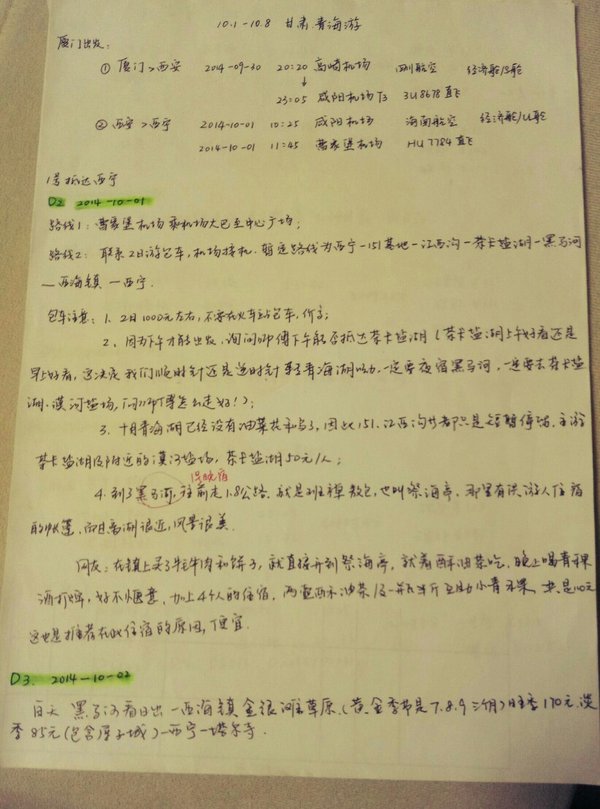 10.1-10.8 甘肃.青海游
厦门出发:
① 厦门>西安 2014-09-30 20:20 高崎机场 川航空 经济舱/S舱
↓
23:05 咸阳机场T3 3U8678直飞
② 西安>西宁 2014-10-01 10:25 咸阳机场 海南航空 经济舱/U舱
2014-10-01 11:45 曹家堡机场 HU7784直飞
1号抵达西宁
D2 2014-10-01
路线1: 曹家堡机场乘机场大巴至中心广场;
路线2: 联系2日游包车,机场接机.暂定路线为西宁-151基地-江西沟-茶卡盐湖-黑马河
—西海镇—西宁
包车注意: 1. 2日1000元左右,不要在火车站包车,价高;
2. 因为下午才能出发,询问师傅下午能否抵达茶卡盐湖(茶卡盐湖上午好看还是
早上好看,这决定我们顺时针还是逆时针青海湖,一定要夜宿黑马河,一定要去茶卡盐
湖.漠河盐场,问师傅怎么走好!);
3. 十月青海湖已经没有油菜花和鸟了,因此151.江西沟等都只是短暂停留.主游
茶卡盐湖及附近的漠河盐场,茶卡盐湖50元/人;
1号晚宿
4. 到了黑马河,往前走1.8公路.就是敖包,也叫祭海亭,那里有供游人住宿
的帐篷,而且离湖很近,风景很美.
网友: 在镇上买了牦牛肉和饼子,就直接开到祭海亭,就着酥油茶吃,晚上喝青稞
酒打牌,好不惬意.加上4个人的住宿,两壶酥油茶及一瓶半斤互助小青稞,共是110元
这也是推荐在此住宿的原因,便宜.
D3. 2014-10-02
白天 黑马河看日出—西海镇金银滩草原(黄金季节是7.8.9三个月)旺季170元.淡
季85元(包含原子城)—西宁—塔尔寺.